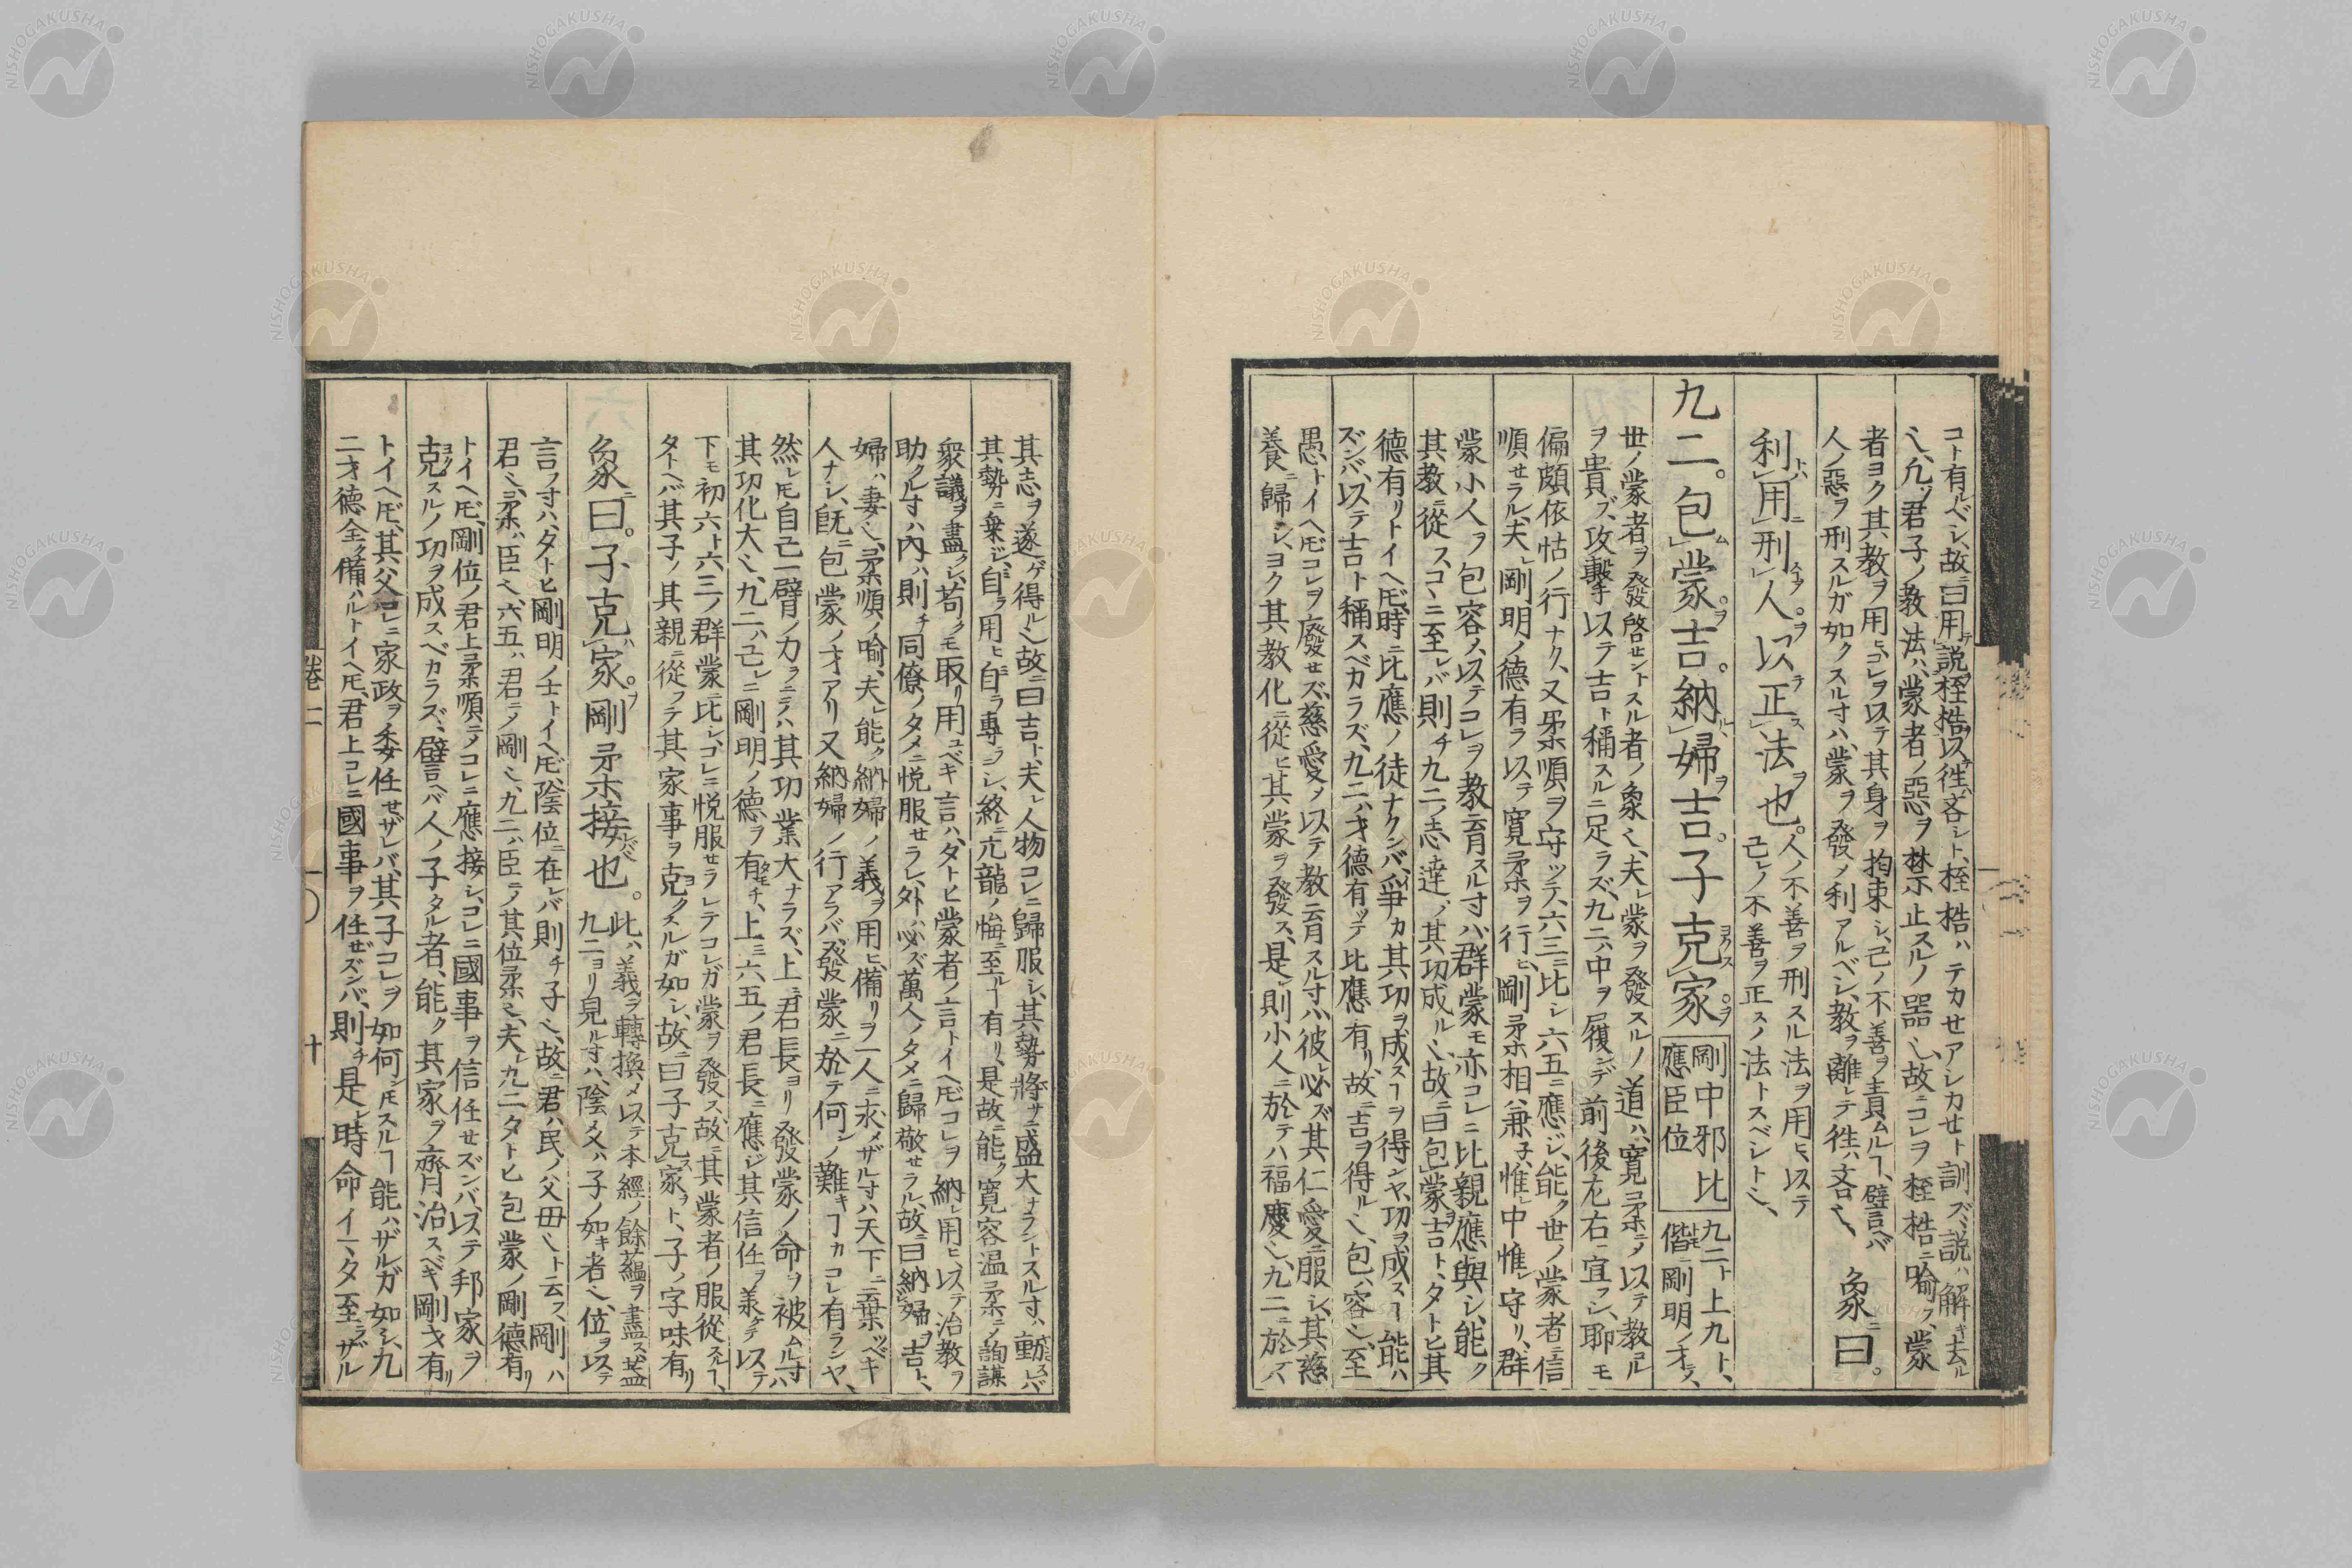 コト有ルベシ、故ニ曰用テ説桎梏以往吝シト、桎梏ハテカセアシカセト訓ズ、説ハ解キ去ル
〻、凡ソ君子ノ教法ハ、蒙者ノ惡ヲ禁止スルノ器〻、故ニコレヲ桎梏ニ喻フ、蒙
者ヨク其教ヲ用ヒ、コレヲ以テ其身ヲ拘束シ、己ノ不善ヲ責ムルヿ、譬言ヘバ
人ノ惡ヲ刑スルガ如クスル寸ハ、蒙ヲ發メ利アルベシ、教ヲ離レテ往ハ吝〻、 象ニ曰。
利トハ用ニ刑人ヲ。以テ正法ヲ也。人ノ不善ヲ刑スル法ヲ用ヒ、以テ
己レノ不善ヲ正スノ法トスベシト〻、
九二。包蒙ヲ。吉。納婦ヲ吉。子克家ヲ。剛中邪比
應臣位
九二ト上九ト、
偕ニ剛明ノ才ヲ、
世ノ蒙者ヲ發啓セントスル者ノ象〻、夫レ蒙ヲ發スルノ道ハ、寬柔ニメ以テ教ルヲ
貴ブ、攻擊以テ吉ト稱スルニ足ラズ、九二ハ中ヲ履ンデ前後左右ニ宜シ、聊モ
偏頗依怙ノ行ナク、又柔順ヲ守ッテ、六三ニ比シ六五ニ應ジ、能ク世ノ蒙者ニ信
順セラル、夫レ剛明ノ德有ヲ以テ寬柔ヲ行ヒ、剛柔相ハ兼子、惟レ中惟レ守リ、群
蒙小人ヲ包容メ、以テコレヲ教育スル寸ハ、群蒙モ亦コレニ比親應與シ、能ク
其教ニ從ス、コヽニ至レバ則チ九二ノ志達ゾ其功成ル〻、故ニ曰包蒙吉ト、タトヒ其
德有リトイヘ𪜈、時ニ比應ノ徒ナクンバ、爭カ其功ヲ成スヿヲ得ンヤ、功ヲ成スヿ能ハ
ズンバ、以テ吉ト稱スベカラズ、九二ハ才德有ッテ比應有リ、故ニ吉ヲ得ル〻、包ハ容〻、至
愚トイヘ𪜈コレヲ廢セズ、慈愛メ以テ教育スル寸ハ、彼レ必ズ其仁愛ニ服シ、其慈
養ニ歸シ、ヨク其教化ニ從ヒ其蒙ヲ發ス、是レ則小人ニ於テハ福慶〻、九二ニ於ハ
其志ヲ遂ゲ得ル〻、故ニ曰吉ト、夫レ人物コレニ歸服シ、其勢將サニ盛大ナラントスル寸ハ、動スレバ
其勢ニ乘ジ、自ラ用ヒ自ラ專ラニシ、終ニ亢龍ノ悔ニ至ルヿ有リ、是故ニ能ク寬容温柔ニメ詢謀
衆議ヲ盡クシ、苟クモ取リ用ユベキ言ハ、タトヒ蒙者ノ言トイヘ𪜈コレヲ納レ用ヒ、以テ治教ヲ
助クル寸ハ、内ハ則チ同僚ノタメニ悦服セラレ、外ハ必ズ萬人ノタメニ歸敬セラル、故ニ曰納婦吉ト、
婦ハ妻〻、柔順ノ喻、夫レ能ク納婦ノ義ヲ用ヒ、備リヲ一人ニ求メザル寸ハ天下ニ棄ツベキ
人ナシ、既ニ包蒙ノ才アリ又納婦ノ行アラバ、發蒙ニ於テ何ンノ難キヿカコレ有ランヤ、
然レ𪜈自己一臂ノ力ラニテハ其功業大ナラズ、上ニ君長ヨリ發蒙ノ命ヲ被ムル寸ハ
其功化大〻、九二ハ己レニ剛明ノ德ヲ有チ、上ミ六五ノ君長ニ應ジ其信任ヲ羕ケテ以テ
下モ初六ト六三ノ群蒙ニ比シ、コレニ悦服セラレテコレガ蒙ヲ發ス、故ニ其蒙者ノ服從スルヿ、
タトヘバ其子ノ其親ニ從フテ其家事ヲ克クスルガ如シ、故ニ曰子克家ヲト、子ノ字味有リ
象ニ曰。子克家ヲ。剛柔接レバ也。此ハ義ヲ轉換メ以テ本經ノ餘蘊ヲ盡ス、蓋
九二ヨリ見ル寸ハ、陰爻ハ子ノ如キ者〻、位ヲ以テ
言フ寸ハ、タトヒ剛明ノ士トイヘ𪜈、陰位ニ在レバ則チ子〻、故ニ君ハ民ノ父母〻ト云フ、剛ハ
君〻、柔ハ臣〻、六五ハ君ニメ剛〻、九二ハ臣ニテ其位柔〻、夫レ九二タトヒ包蒙ノ剛德有リ
トイヘ𪜈、剛位ノ君上柔順ニメコレニ應接シ、コレニ國事ヲ信任セズンバ、以テ邦家ヲ
克スルノ功ヲ成スベカラズ、譬言ヘバ人ノ子タル者、能ク其家ヲ齊治スベキ剛才有リ
トイヘ𪜈、其父コレニ家政ヲ委任セザレバ、其子コレヲ如何ン𪜈スルヿ能ハザルガ如シ、九
二才德全ク備ハルトイヘ𪜈、君上コレニ國事ヲ任ゼズンバ、則チ是レ時命イマタ至ラザル
卷二
十